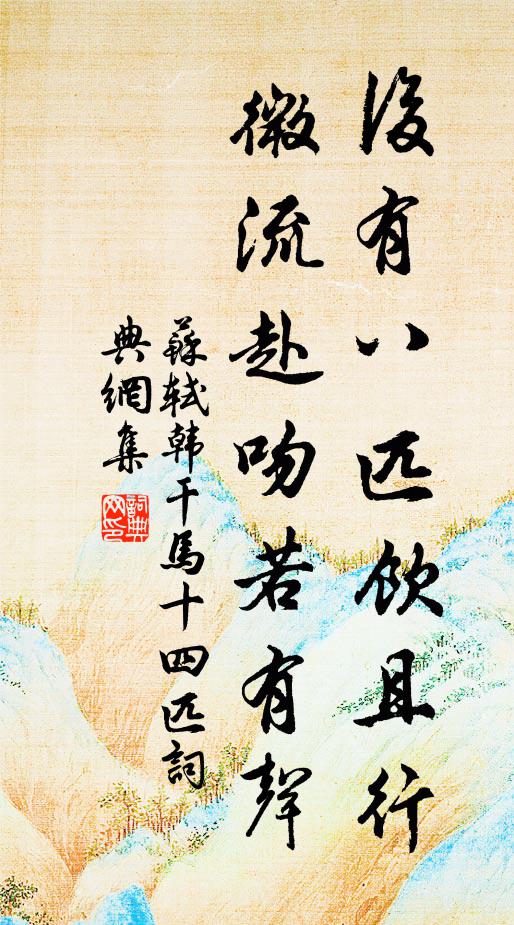 後有八匹飲且行
微流赴吻若有聲
蘇軾韓干馬十四匹詞
典網集
詞典網印